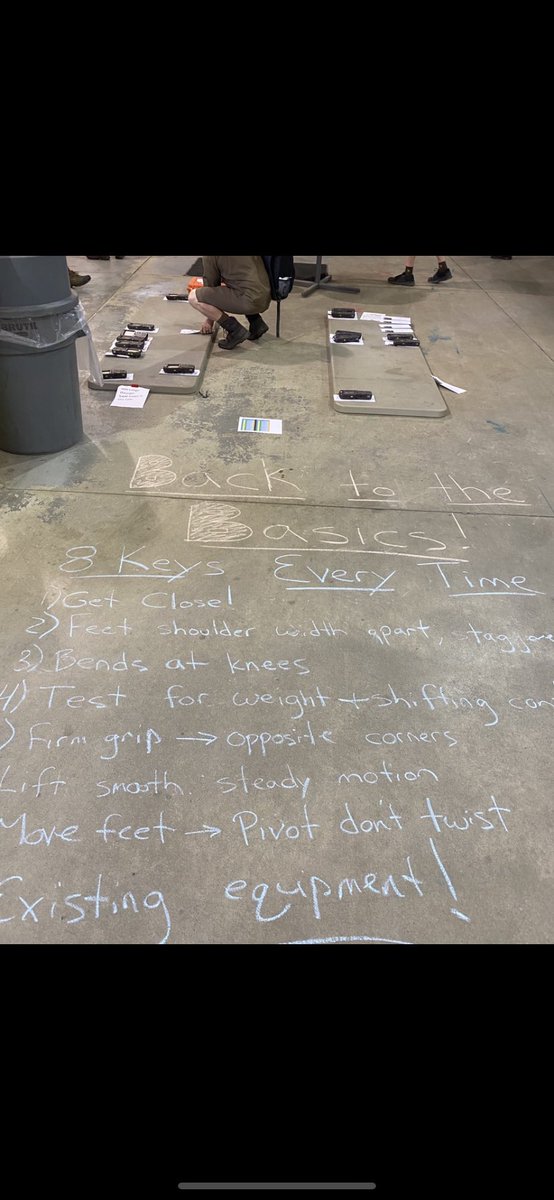 BRUTE
Back to the
Basics!
8 Keys Every Time
1) Get Close!
2) Feet shoulder width apart,
3) Bends at knees
4) Test for weight + shifting
) Firm grip → opposite corners
Lift smooth, steady motion
Move feet → Pivot don't twist
Existing equipment!